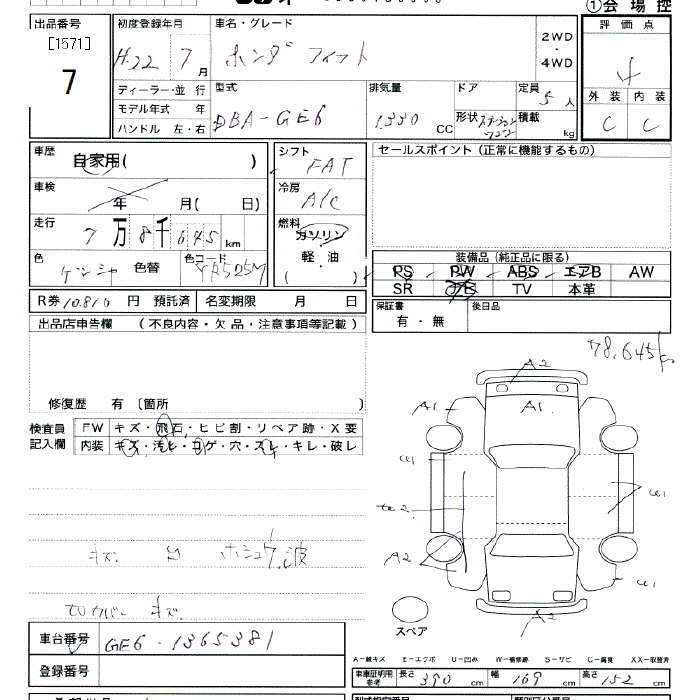 ①会場控
出品番号 初度登録年月 車名・グレード 評価点
[1571]
7
H.22 7月 ホンダ フィット 2WD・4WD 4
ディーラー・並行 型式 排気量 ドア 定員 5人 外装 内装
モデル年式 年 DBA-GE6 1330 CC 形状 積載 kg C C
ハンドル 左・右
車歴 自家用( ) シフト FAT セールスポイント(正常に機能するもの)
車検 年 月( 日) 冷房 A/C
走行 7万8千645km 燃料 ガソリン
軽・油
( )
色 色替 色コード YR525M
装備品(純正品に限る)
PS PW ABS エアB AW
SR TV 本革
R券 10,810円 預託済 名変期限 月 日 保証書 有・無 後日品
出品店申告欄 (不良内容・欠品・注意事項等記載)
78,645km
修復歴 有 〔箇所 〕
検査員記入欄 FW キズ・飛石・ヒビ割・リペア跡・X要
内装 キズ・汚れ・コゲ・穴・スレ・キレ・破レ
A2
A1 A1
W1
W1
A2
W1
A2
スペア
キズ ホシュウ波
カバー キズ
車台番号 GE6-1365381
登録番号
A-線キズ E-エクボ U-凹み W-補修跡 S-サビ C-腐食 XX-取替済
車庫証明用参考 長さ 390cm 幅 169cm 高さ 152cm